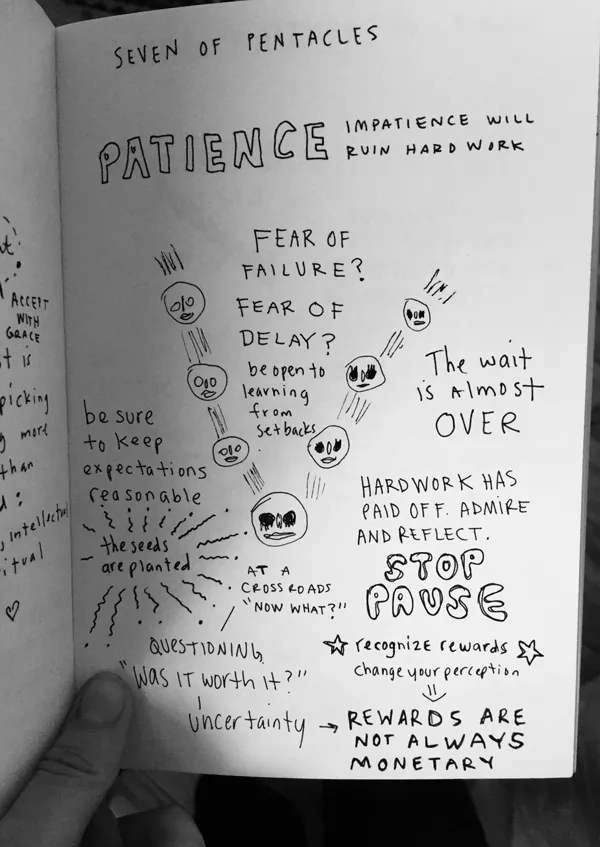 SEVEN OF PENTACLES
PATIENCE
IMPATIENCE WILL
RUIN HARD WORK
FEAR OF
FAILURE?
FEAR OF
DELAY?
be open to
learning
from
setbacks
The wait
is almost
OVER
be sure
to keep
expectations
reasonable
the seeds
are planted
HARDWORK HAS
PAID OFF. ADMIRE
AND REFLECT.
STOP
PAUSE
AT A
CROSSROADS
"NOW WHAT?"
QUESTIONING
"WAS IT worth it?"
uncertainty →
☆ recognize rewards ☆
change your perception
REWARDS ARE
NOT ALWAYS
MONETARY
ACCEPT
WITH
GRACE
t is
picking
more
than
intellectual